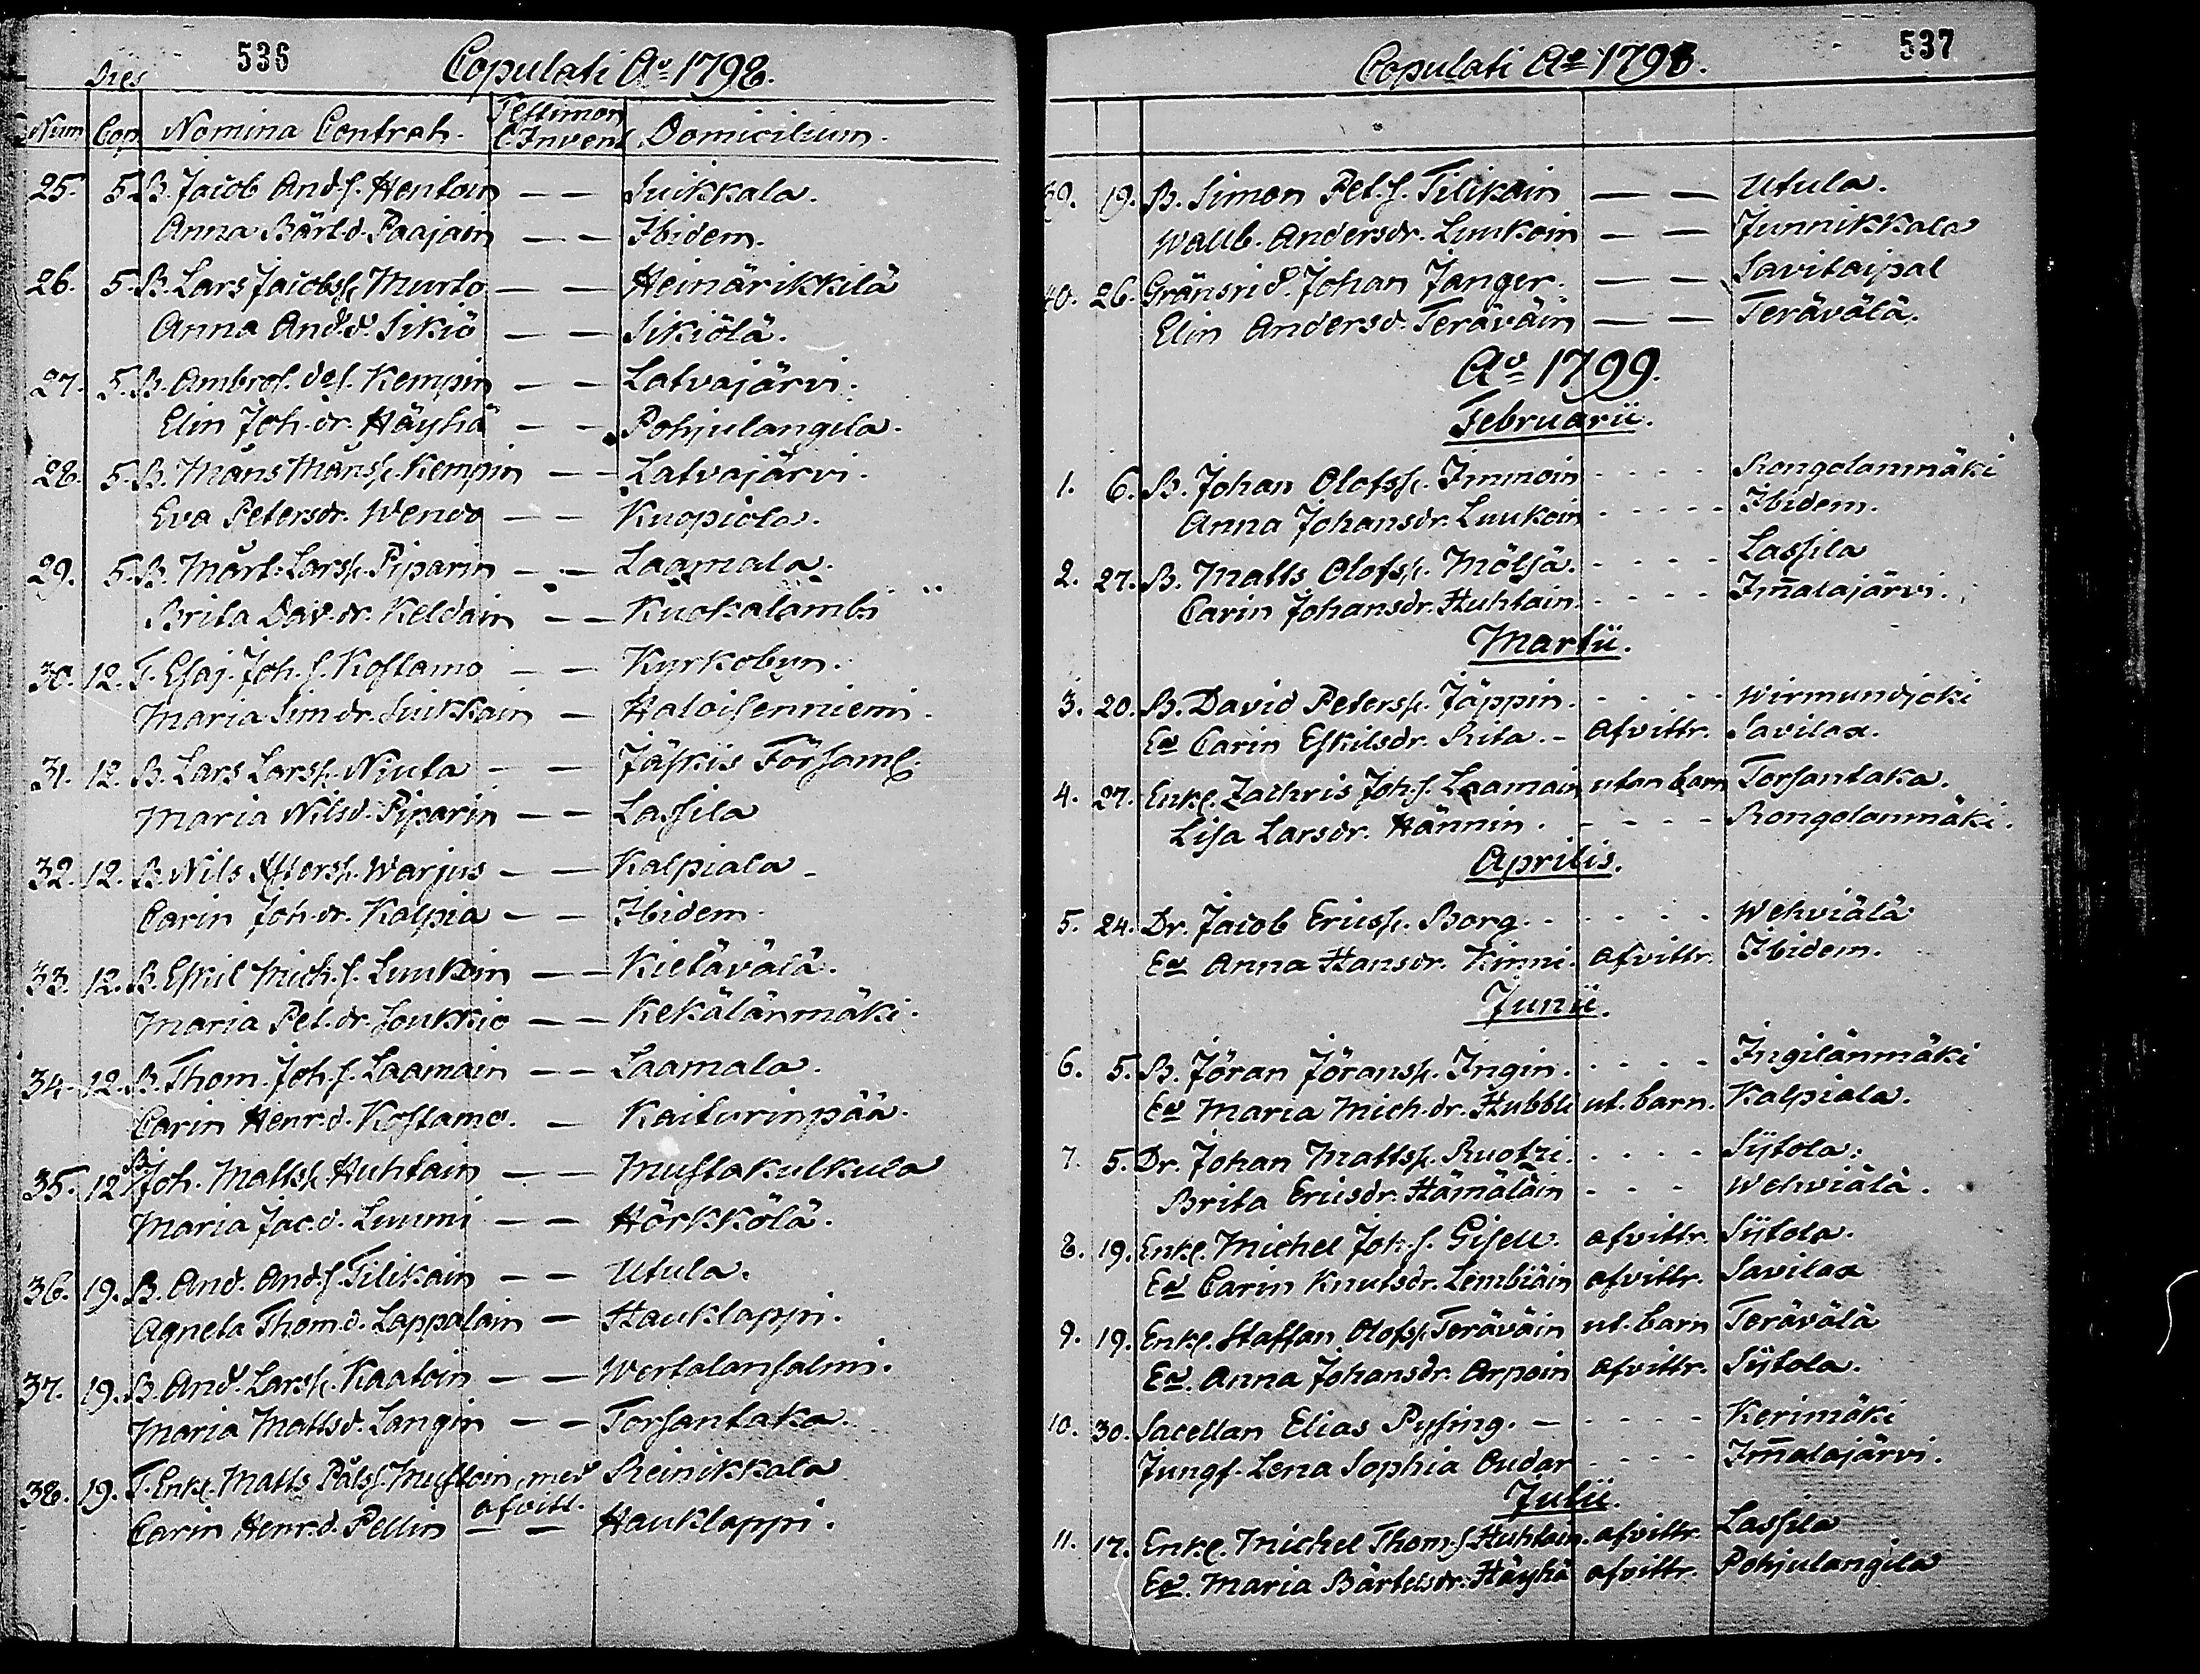 536
Copulati Ao 1798.
Dies
Num Cop Nomina Contrah. Testimon C. Invent Domicilium.
25. 5. B. Jacob And.s. Hentoin — — Suikkala.
Anna Bärt.d. Paajain — — Ibidem.
26. 5. B. Lars Jacobss. Murto — — Heinärikkilä
Anna And.d. Sikiö — — Sikiölä.
27. 5. B. Ambros. s. Kempin — — Latvajärvi.
Elin Joh.dr. Häyhä — — Pohjulangila.
28. 5. B. Måns Månss. Kempin — — Latvajärvi.
Eva Petersdr. Wenoo — — Kuopiola.
29. 5. B. Mårt. Larss. Piparin — — Laamala.
Brita Dav.dr. Keldain — — Kuokalambi
30. 12. T. Esaj. Joh.s. Kostamo — — Kyrkobyn.
Maria Sim.dr. Suikkain — Haloisenniemi.
31. 12. B. Lars Larss. Niuta — — Jäskis Församl.
Maria Nilsd. Piparin — — Lassila
32. 12. B. Nils Warjus — — Kalpiala
Carin Joh.dr. Kalpia — — Ibidem.
33. 12. B. Eskil Mich.s. Luukoin — — Kietävälä.
Maria Pet.dr. Soukkio — — Kekälänmäki.
34. 12. B. Thom. Joh.s. Laamain — — Laamala.
Carin Henr.d. Kostamo. — Kaiturinpää.
35. 12 B. Joh. Mattss. Huhtain — — Mustakulkula
Maria Jac.d. Luumi — — Hörkkölä.
36. 19. B. And. And.s. Tilikain — — Utula.
Agneta Thom.d. Lappalain — Hauklappi.
37. 19. B. And. Larss. Kaatoin — — Wertalansalmi.
Maria Mattsd. Langin — — Torsantaka.
38. 19. T. Enkl. Matts Pålss. Mustoin, med Reinikkala
afvitt.
Carin Henr.d. Pellin — — Hauklappi.
537
Copulati Ao 1798.
39. 19. B. Simon Pet.s. Tilikain — — Utula.
Wallb. Andersdr. Luukoin — — Junnikkala
40. 26. Gränsrid. Johan Janger. — — Savitaipal
Elin Andersd. Teräväin — — Terävälä.
Ao 1799.
Februarii.
1. 6. B. Johan Olofss. Immoin - - - - Rongolanmäki
Anna Johansdr. Luukoin - - - - - Ibidem.
2. 27. B. Matts Olofss. Mölsä. - - - - Lassila
Carin Johansdr. Huhtain. - - - - Im̄alajärvi.
Martii.
3. 20. B. David Peterss. Jäppin. - - - - Wirmundjoki
Ea Carin Eskilsdr. Rita. - afvittr. Savilax.
4. 27. Enkl. Zachris Joh.s. Laamain utan barn Torsantaka.
Lisa Larsdr. Hännin. - - - - Rongolanmäki.
Aprilis.
5. 24. Dr. Jacob Ericss. Borg. - - - - Wehviälä
Ea Anna Hansdr. Kinni. afvittr. Ibidem.
Junii.
6. 5. B. Jöran Jöranss. Ingin. - - - - Ingilänmäki
Ea Maria Mich.dr. Hubbli ut. barn. Kalpiala.
7. 5. Dr. Johan Mattss. Ruotzi. - - - - Sÿtola.
Brita Ericsdr. Hämäläin - - - Wehviälä.
8. 19. Enkl. Michel Joh.s. Gisell. afvittr. Sÿtola.
Ea Carin Knutsdr. Lembiäin afvittr. Savilax
9. 19. Enkl. Staffan Olofss. Teräväin ut. barn Terävälä
Ea. Anna Johansdr. Arpoin afvittr. Sÿtola.
10. 30. Sacellan Elias Pyssing. - - - - - Kerimäki
Jungf. Lena Sophia Oudar - - - - Im̄alajärvi.
Julii.
11. 17. Enkl. Michel Thom.s. Huhtain. afvittr. Lassila
Ea. Maria Bärtelsdr. Häyhä afvittr. Pohjulangila